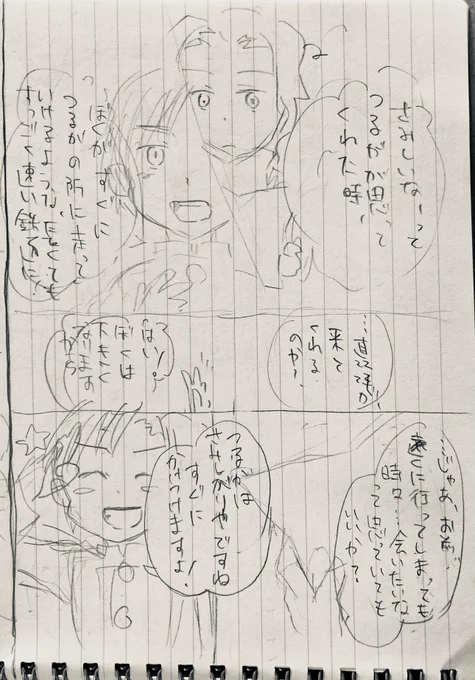 さみしいなーって
つるがが思って
くれた時、
ぼくがすぐに
つるがの所に走って
いけるような、長くても
すっごく速い鉄道に!
…直江津が
来て
くれる
のか?
はい!
ぼくは
大きく
なりますの
から
…じゃあ、お前
遠くに行ってしまっても
時々…会いたいな
って思っていても
いいか?
つるがは
さみしがりやですね
すぐに
かけつけますよ!